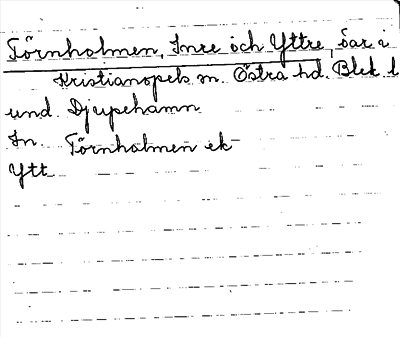 Törnholmen, Inre och Yttre, öar i
Kristianopels sn. Östra hd. Blek. l
und. Djupehamn
In. Törnholmen ek
Ytt